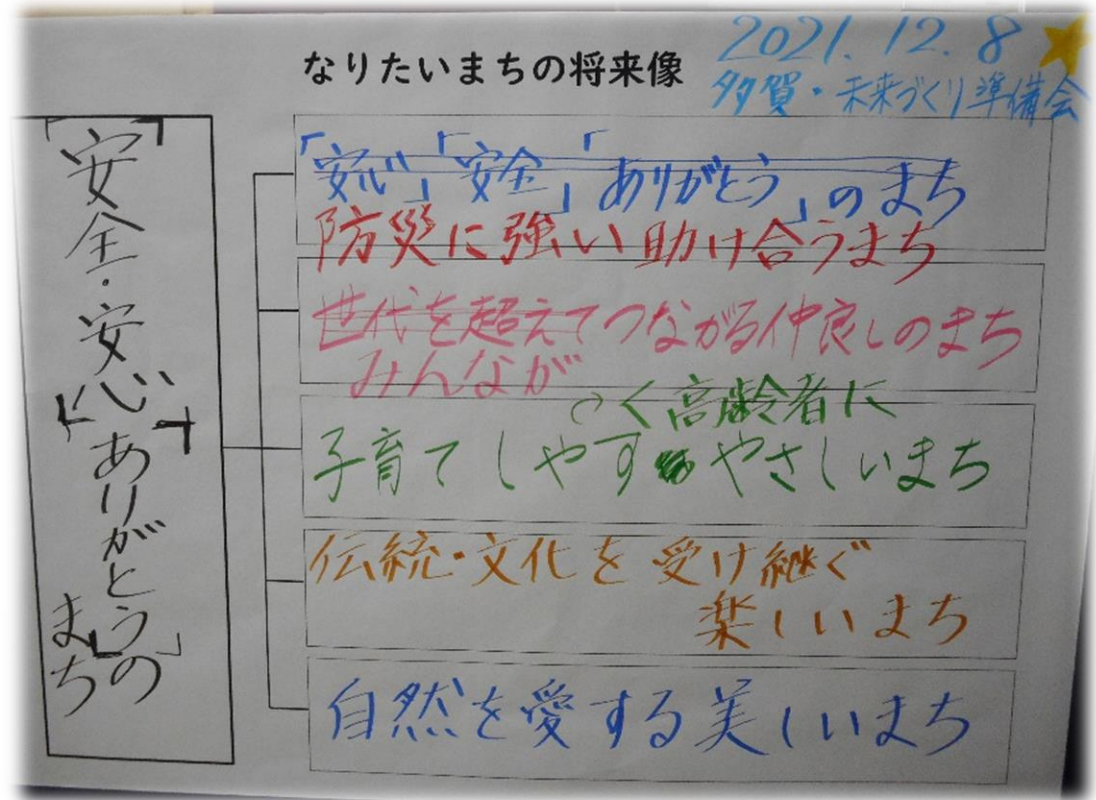 なりたいまちの将来像
2021.12.8
多賀・未来づくり準備会
「安全・安心
「ありがとう」の
まち
「安心」「安全」「ありがとう」のまち
防災に強い助け合うまち
世代を超えてつながる仲良しのまち
みんなが
く高齢者に
子育てしやす やさしいまち
伝統・文化を受け継ぐ
楽しいまち
自然を愛する美しいまち